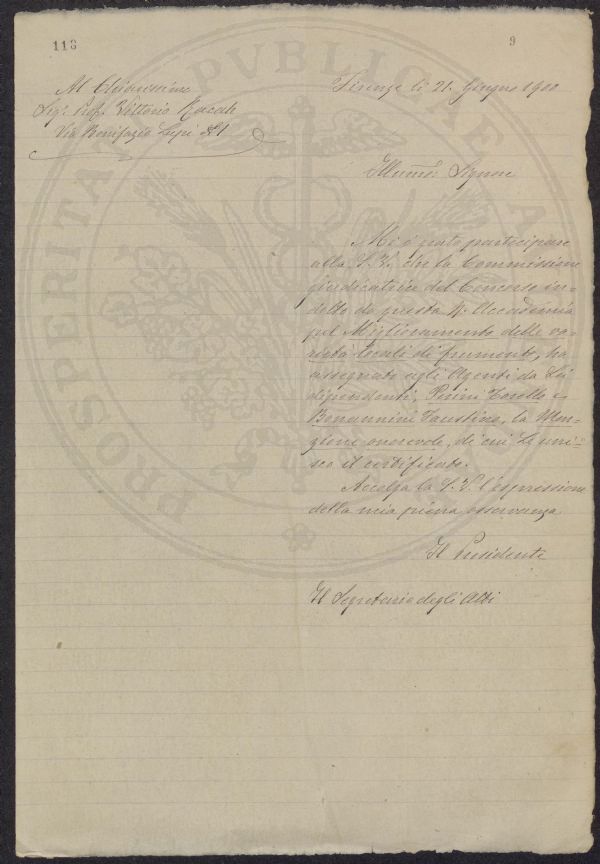 118
9
Al Chiarissimo
Sigr. Prof. Vittorio Racah
Via Bonifazio Lupi N. 1
Firenze li 21. Giugno 1900
Illumo: Signore
Mi è grato partecipare
alla S. V. che la Commissione
giudicatrice del Concorso in-
detto da questa R. Accademia
pel Miglioramento delle va-
rietà locali di frumento, ha
assegnato agli Agenti da Lei
dipendenti, Torello e
Bonannini Faustino, la Men-
zione onorevole, di cui Le uni-
sco il certificato.
Accolga la S. V. l'espressione
della mia piena osservanza
Il Presidente
Il Segretario degli Atti
PROSPERITATI PVBLICAE AVGENDAE